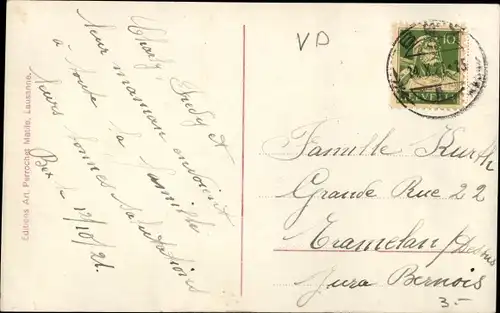 Editions Art. Perrochet Matile, Lausanne
Charly, Fredy et
leur maman envoient
à toute la famille
leurs bonnes salutations
Bex le 12/10/21.
VD
10
HELVETIA
Famille Kurth
Grande Rue 22
Tramelan /Dessus
Jura Bernois
3.-